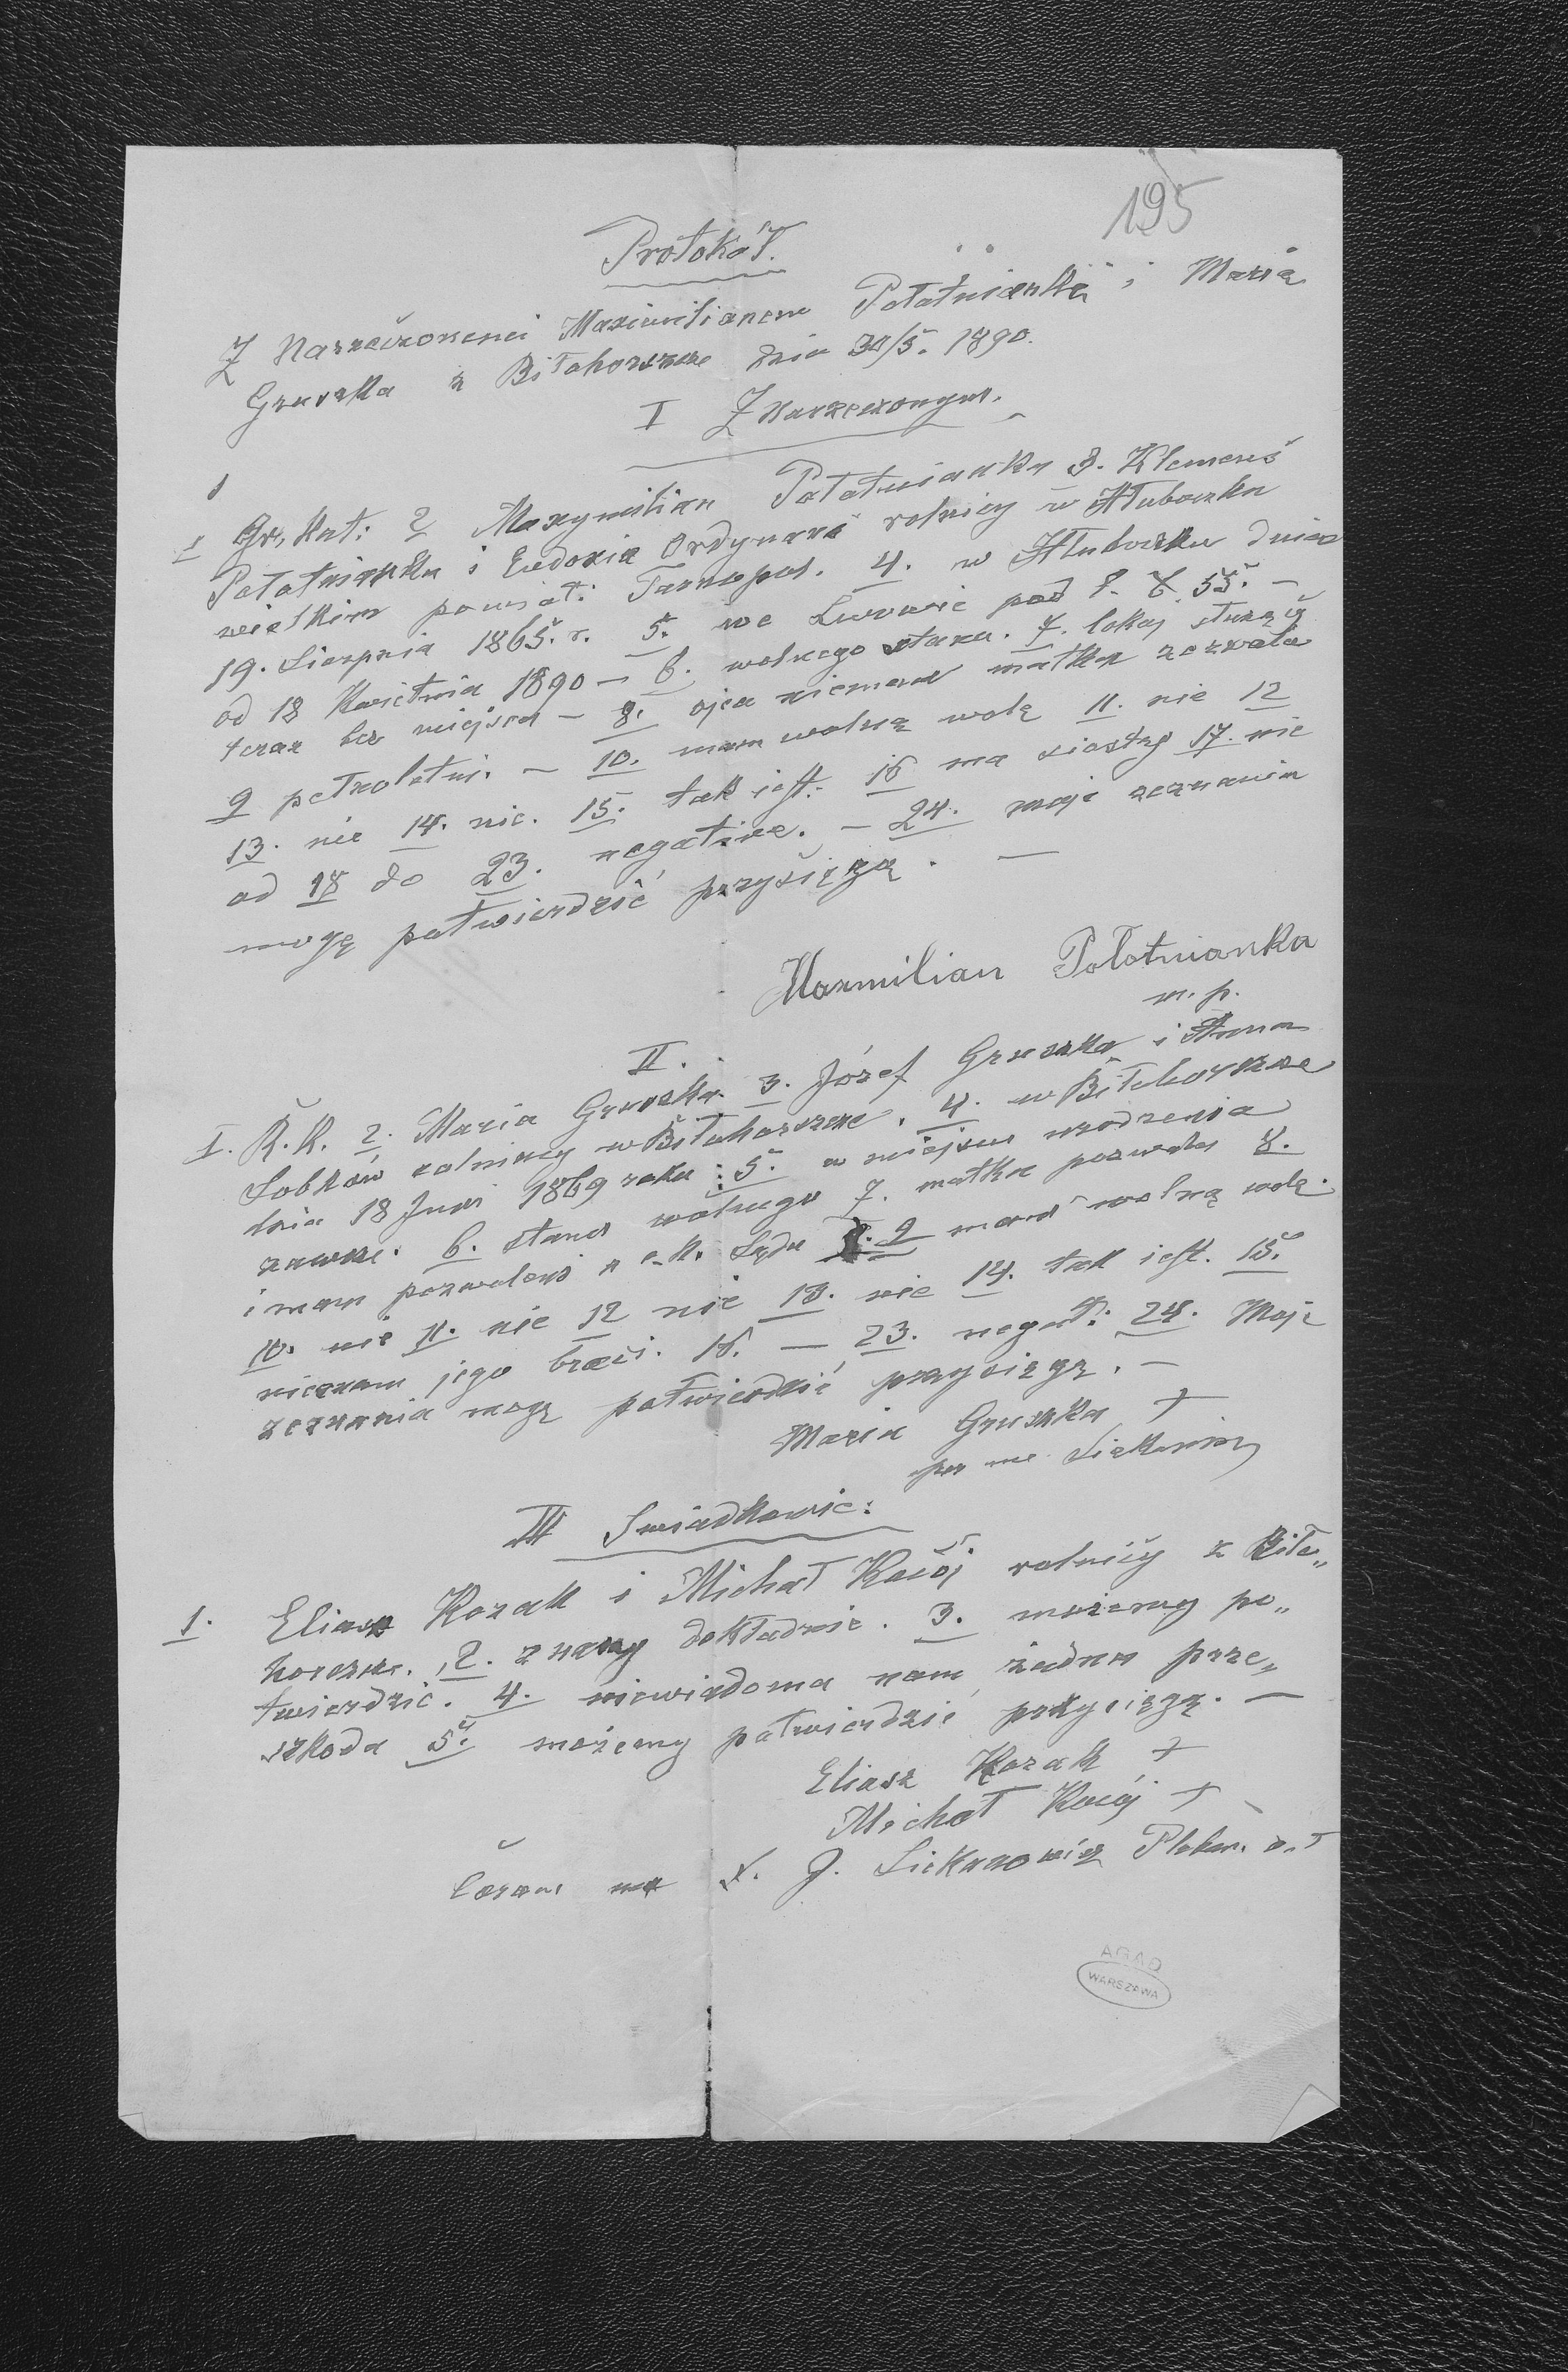 195
Protokół.
Z Narzeczonemi Maximilianem Połotnianką i Marią
Gruszka z Biłohorszcze dnia 30/5. 1890.
I Z Narzeczonym.
1 Gr. kat: 2 Maxymilian Połotnianka 3. Klemens
Połotnianka i Eudoxia Ordynans rolnicy w Hłuboczku
wielkim powiat: Tarnopol. 4. w Hłuboczku dnia
19. Sierpnia 1865. r. 5. we Lwowie pod l. 55. –
od 18 Kwietnia 1890 – 6. wolnego stanu. 7. lokaj służący
teraz bez miejsca – 8. ojca niemam matka zezwala
9 pełnoletni. – 10. mam wolną wolę 11. nie 12
13. nie 14. nie. 15. tak jest. 16 ma siostry 17. nie
od 18 do 23. negative. – 24. moje zeznania
mogę potwierdzić przysięgą. –
Maxmilian Połotnianka
m. p.
II.
I. R. k. 2. Maria Gruszka 3. Józef Gruszka i Anna
rolnicy w Biłohorszcze. 4. w Biłohorszcze
dnia 18 Juni 1869 roku: 5. w miejscu urodzenia
zawsze. 6. stanu wolnego 7. matka pozwala 8.
i mam pozwolenie z c. k. Sądu 9 mam wolną wolę.
10. nie 11. nie 12 nie 13. nie 14. tak jest. 15.
nieznam jego braci. 16. – 23. negat: 24. Moje
zeznania mogę potwierdzić przysięgą. –
Maria Gruszka +
per me Siekanowicz
III Swiadkowie:
1. Eliasz Kozak i Michał Kocój rolnicy z Biło„
horszcze., 2. znamy dokładnie. 3. możemy po„
twierdzić. 4. niewiadoma nam żadna prze„
szkoda 5. możemy potwierdzić przysięgą. –
Eliasz Kozak +
Michał Kocój +
Coram me X. J. Siekanowicz Pleban
AGAD
WARSZAWA